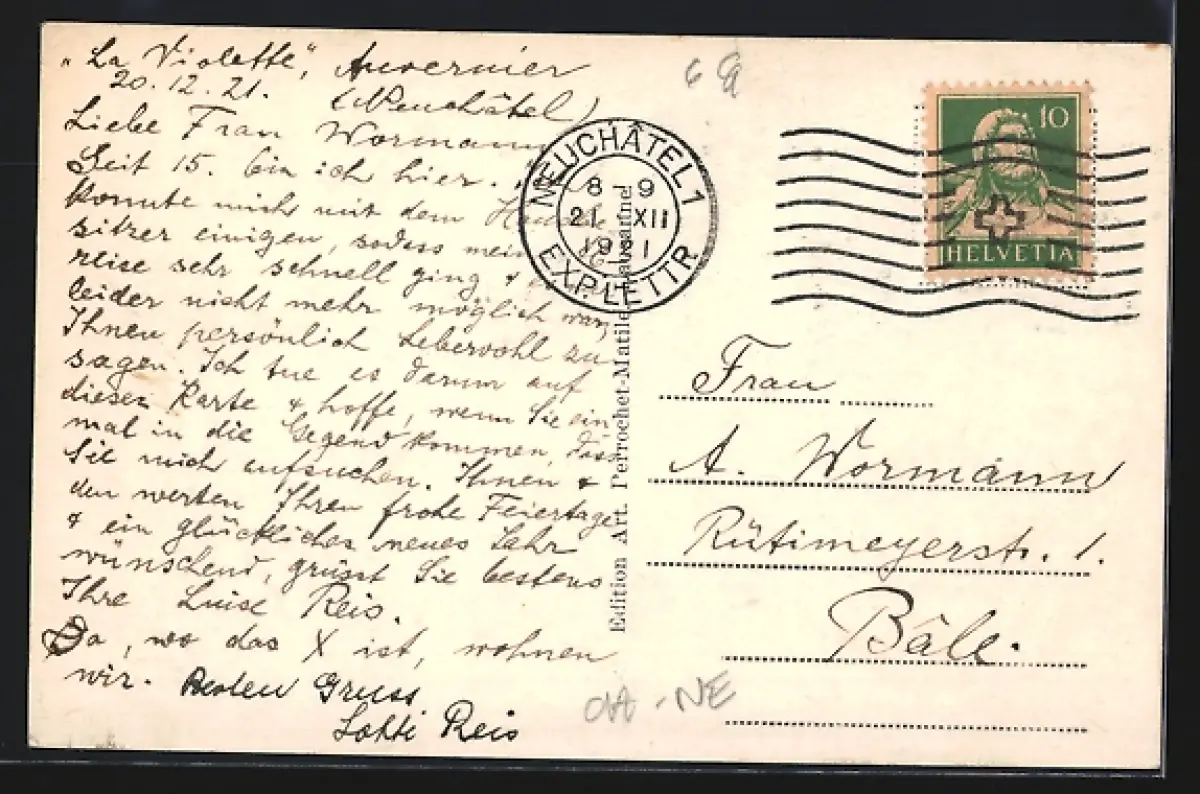 "La Violette", Auvernier
20.12.21. (Neuchâtel)
Liebe Frau Wormann
Seit 15. bin ich hier.
konnte mich mit dem
sitzer einigen, sodass mein
reise sehr schnell ging &
leider nicht mehr möglich war,
Ihnen persönlich Lebewohl zu
sagen. Ich tue es darum auf
dieser Karte & hoffe, wenn Sie ein-
mal in die Gegend kommen, dass
Sie mich aufsuchen. Ihnen &
den werten Ihren frohe Feiertage
& ein glückliches neues Jahr
wünschend, grüsst Sie bestens
Ihre Luise Reis.
Da, wo das X ist, wohnen
wir. Besten Gruss
Lotti Reis
Edition Art. Perrochet-Matile
NEUCHÂTEL 1
8-9
21 XII
1921
EXP. LETTR.
10
HELVETIA
Frau
A. Wormann
Rütimeyerstr. 1.
Bâle.
-NE